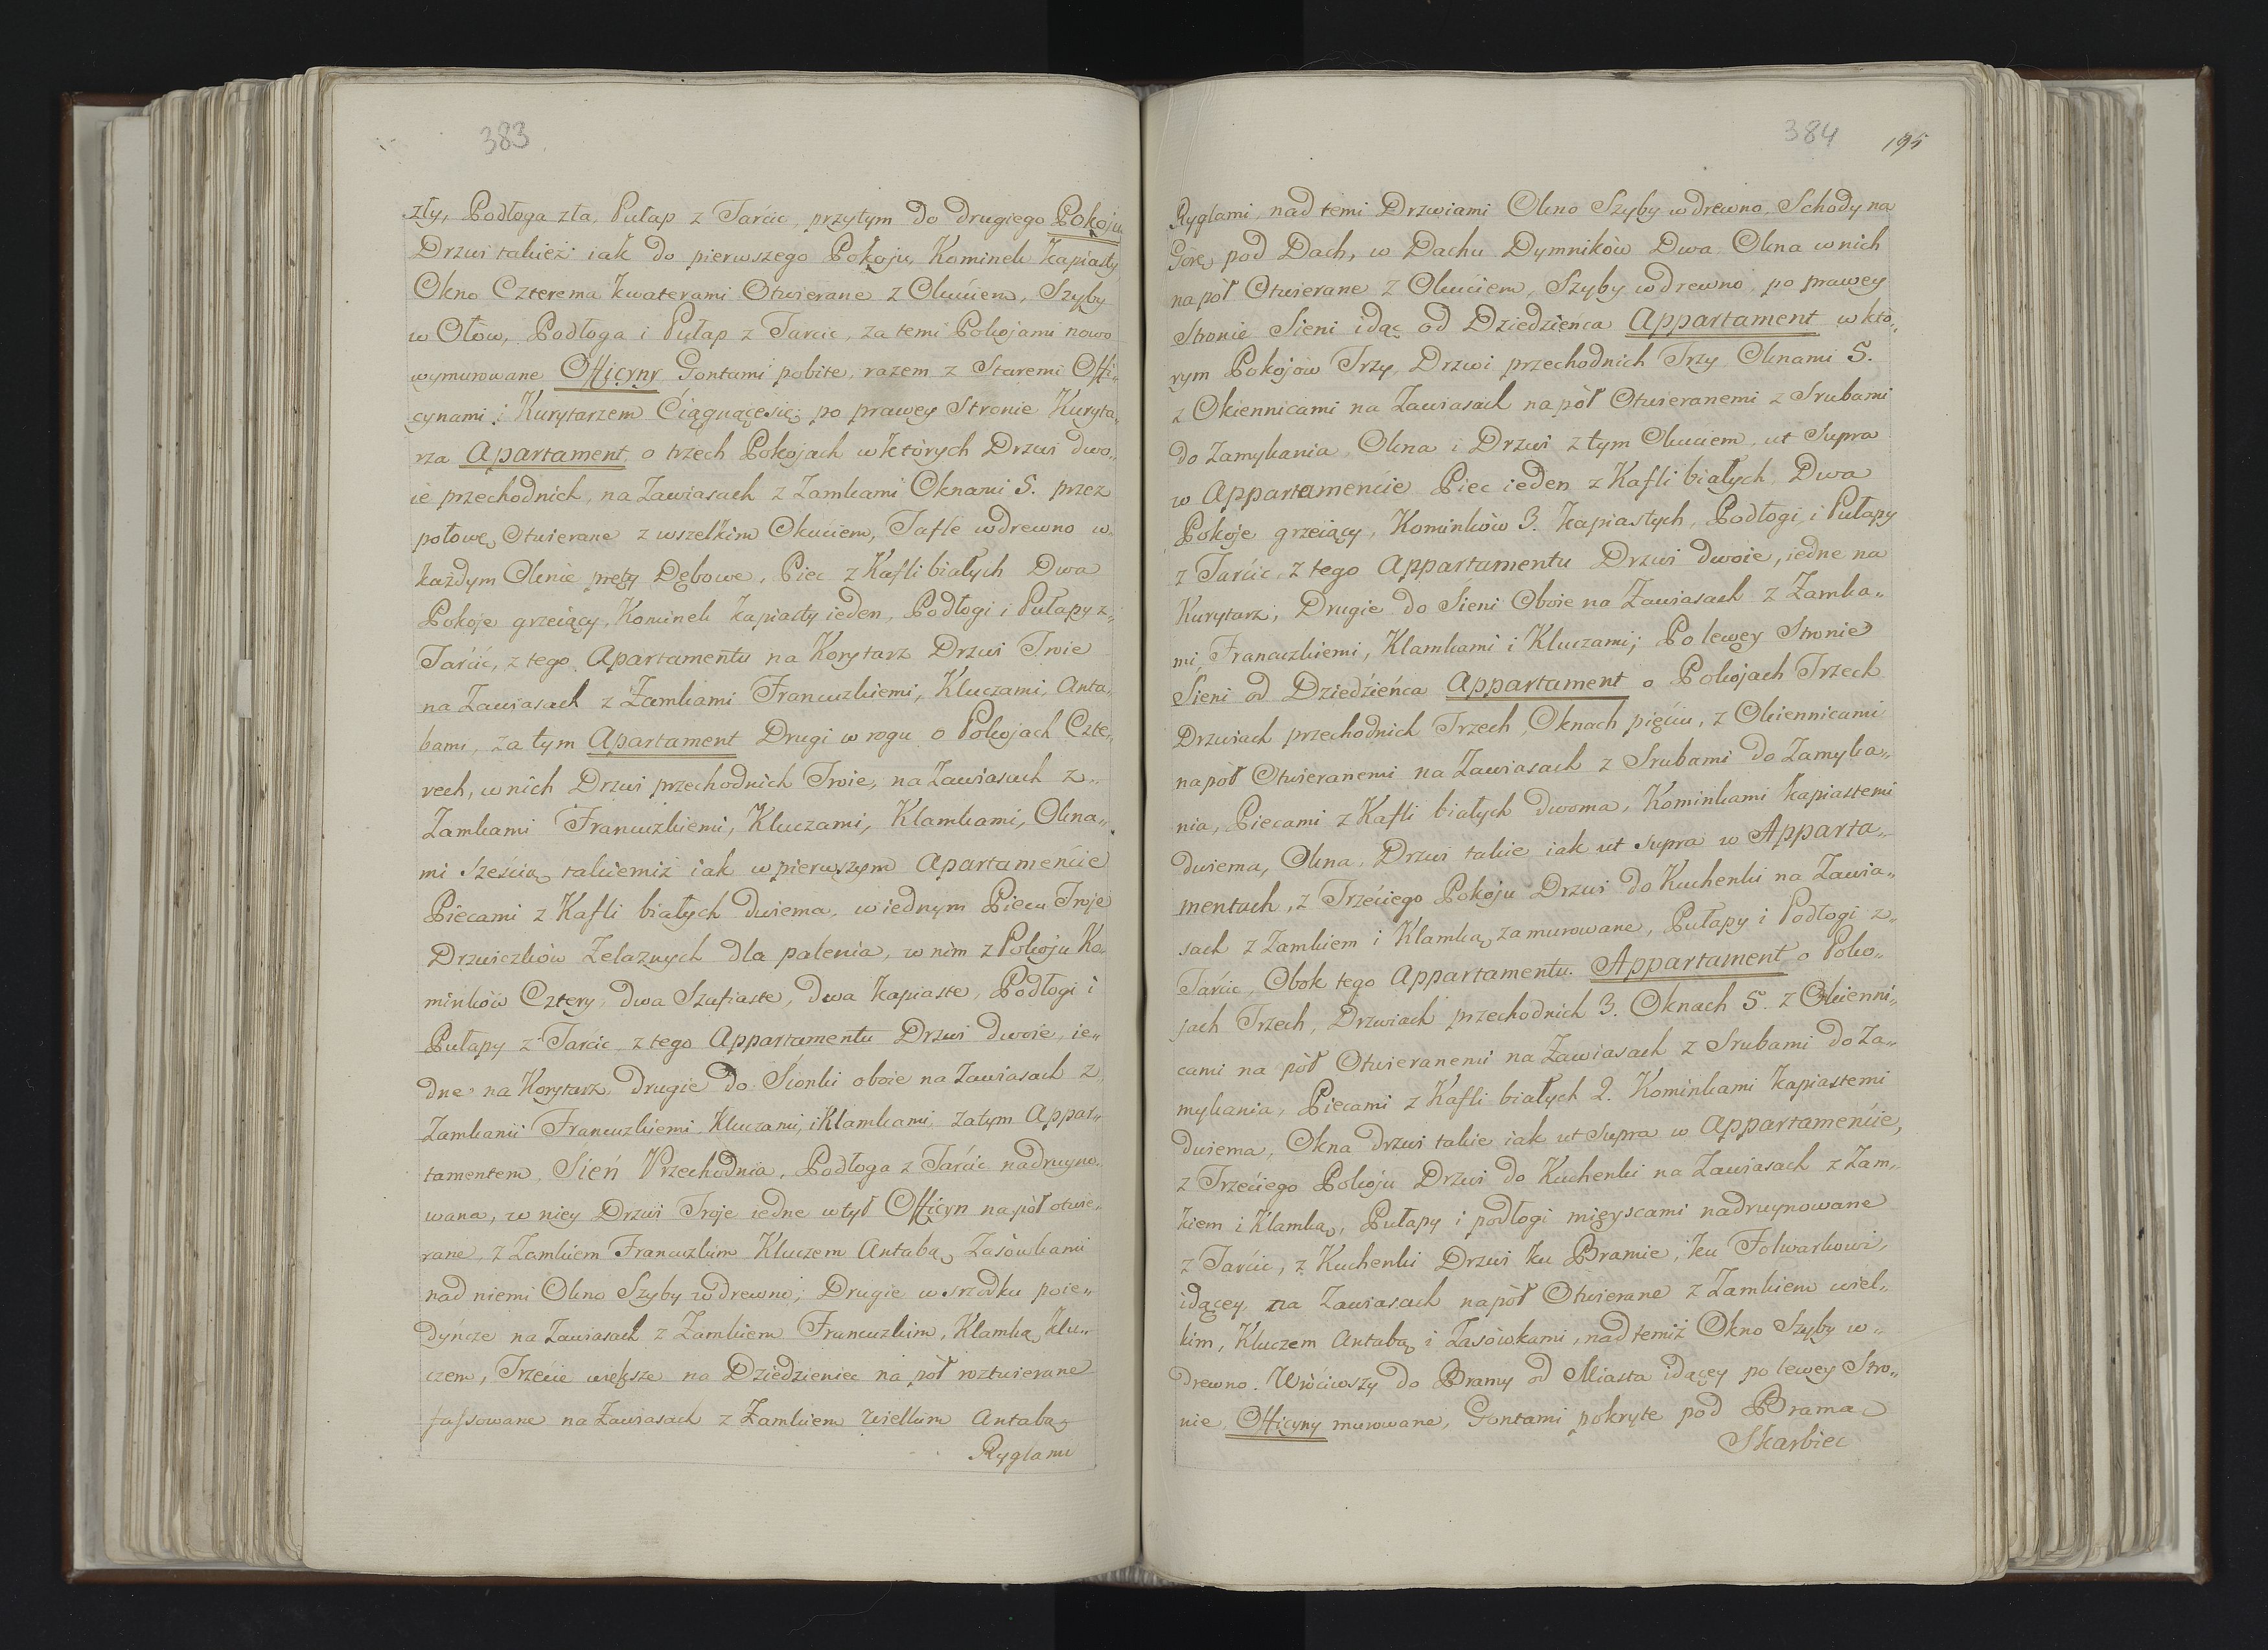 383
zły, Podłoga zła, Pułap z Tarcic, przytym do drugiego Pokoju
Drzwi takież iak do pierwszego Pokoju, Kominek kapiasty
Okno Czterema kwaterami Otwierane z Okuciem, Szyby
w Ołow, Podłoga i Pułap z Tarcic, za temi Pokojami nowo
wymurowane Officyny Gontami pobite, razem z Staremi Offi„
cynami i Kurytarzem Ciągnącesię; po prawey Stronie Kuryta„
rza Apartament o trzech Pokojach w których Drzwi dwo„
ie przechodnich, na Zawiasach z Zamkami Oknami 5. przez
połowę Otwierane z wszelkim Okuciem, Tafle w drewno w„
każdym Oknie pręty Dębowe, Piec z Kafli białych Dwa
Pokoje grzeiący, Kominek kapiasty ieden, Podłogi i Pułapy z„
Tarcic, z tego Apartamentu na Korytarz Drzwi Troie
na Zawiasach z Zamkami Francuzkiemi, Kluczami, Anta„
bami, za tym Apartament Drugi w rogu o Pokojach Czte„
rech, w nich Drzwi przechodnich Troie, na Zawiasach z„
Zamkami Francuzkiemi, Kluczami, Klamkami, Okna„
mi sześcią takiemiż iak w pierwszym Apartamencie
Piecami z Kafli białych dwiema, w iednym Piecu Troje
Drzwiczków Zelaznych dla palenia, w nim z Pokoju Ko„
minków Cztery, dwa Szafiaste, dwa kapiaste, Podłogi i
Pułapy z Tarcic, z tego Appartamentu Drzwi dwoie, ie„
dne na Korytarz, drugie do Sionki oboie na Zawiasach z
Zamkami Francuzkiemi, Kluczami, i Klamkami, zatym Appar„
tamentem, Sień Przechodnia, Podłoga z Tarcic nadruyno„
wana, w niey Drzwi Troje iedne w tył Officyn na pół otwie„
rane, z Zamkiem Francuzkim Kluczem Antabą, Zasówkami
nad niemi Okno Szyby w drewno; Drugie w srzodku poie„
dyńcze na Zawiasach z Zamkiem Francuzkim, Klamką, Klu„
czem, Trzecie większe na Dziedzieniec na pół roztwierane
fassowane na Zawiasach z Zamkiem Wielkim Antabą
Ryglami
384
195
Ryglami, nad temi Drzwiami Okno Szyby w drewno, Schody na
Górę pod Dach, w Dachu Dymników Dwa Okna w nich
na pół Otwierane z Okuciem, Szyby w drewno, po prawey
Stronie Sieni idąc od Dziedzieńca Appartament w któ„
rym Pokojów Trzy, Drzwi przechodnich Trzy Oknami 5.
z Okiennicami na Zawiasach na pół Otwieranemi z Srubami
do Zamykania Okna i Drzwi z tym Okuciem, ut Supra
w Appartamencie Piec ieden z Kafli białych Dwa
Pokoje grzeiący, Kominków 3. kapiastych, Podłogi, i Pułapy
z Tarcic, z tego Appartamentu Drzwi dwoie, iedne na
Kurytarz, Drugie do Sieni Oboie na Zawiasach z Zamka„
mi, Francuzkiemi, Klamkami i Kluczami; Po lewey Stronie
Sieni od Dziedzieńca Appartament o Pokojach Trzech
Drzwiach przechodnich Trzech, Oknach pięciu, z Okiennicami
na pół Otwieranemi na Zawiasach z Srubami do Zamyka„
nia, Piecami z Kafli białych dwoma, Kominkami kapiastemi
dwiema, Okna, Drzwi takie iak ut supra w Apparta„
mentach, z Trzeciego Pokoju Drzwi do Kuchenki na Zawia„
sach z Zamkiem i Klamką zamurowane, Pułapy i Podłogi z„
Tarcic, Obok tego Appartamentu. Appartament o Poko„
jach Trzech, Drzwiach przechodnich 3. Oknach 5. z Okienni„
cami na pół Otwieranemi na Zawiasach z Srubami do Za„
mykania, Piecami z Kafli białych 2. Kominkami kapiastemi
dwiema, Okna drzwi takie iak ut Supra w Appartamencie,
z Trzeciego Pokoju Drzwi do Kuchenki na Zawiasach z Zam„
kiem i Klamką, Pułapy i podłogi mieyscami nadruynowane
z Tarcic, z Kuchenki Drzwi ku Bramie, ku Folwarkowi,
idącey, na Zawiasach na pół Otwierane z Zamkiem wiel„
kim, Kluczem Antabą i Zasówkami, nad temiż Okno Szyby w„
drewno. Wróciwszy do Bramy od Miasta idącey po lewey Stro„
nie, Officyny murowane, Gontami pokryte pod Bramą
Skarbiec